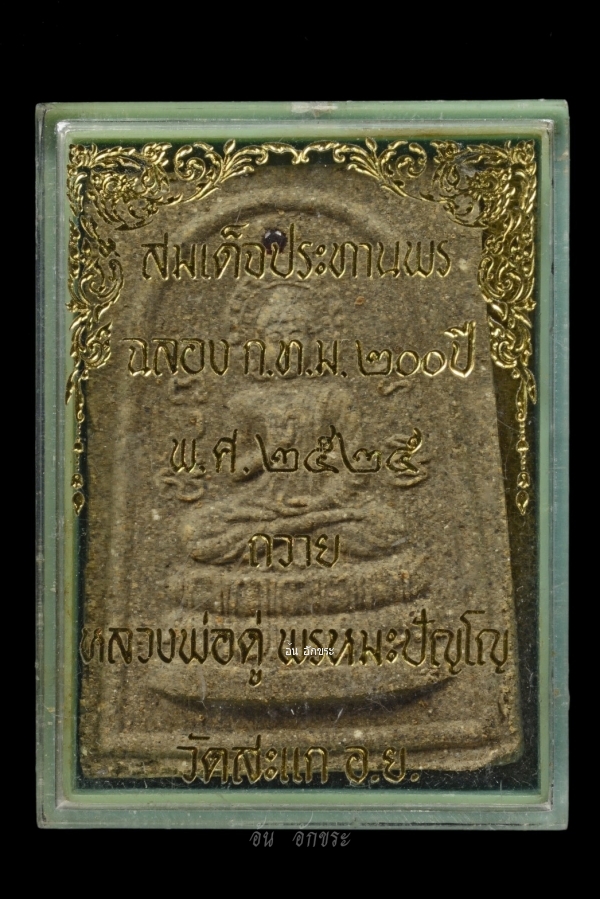 สมเด็จประทานพร
ฉลอง ก.ท.ม. ๒๐๐ ปี
พ.ศ. ๒๕๒๕
ถวาย
หลวงพ่อดู่ พรหมะปัญโญ
อั้น อักขระ
วัดสะแก อ.ย.
อั้น อักขระ